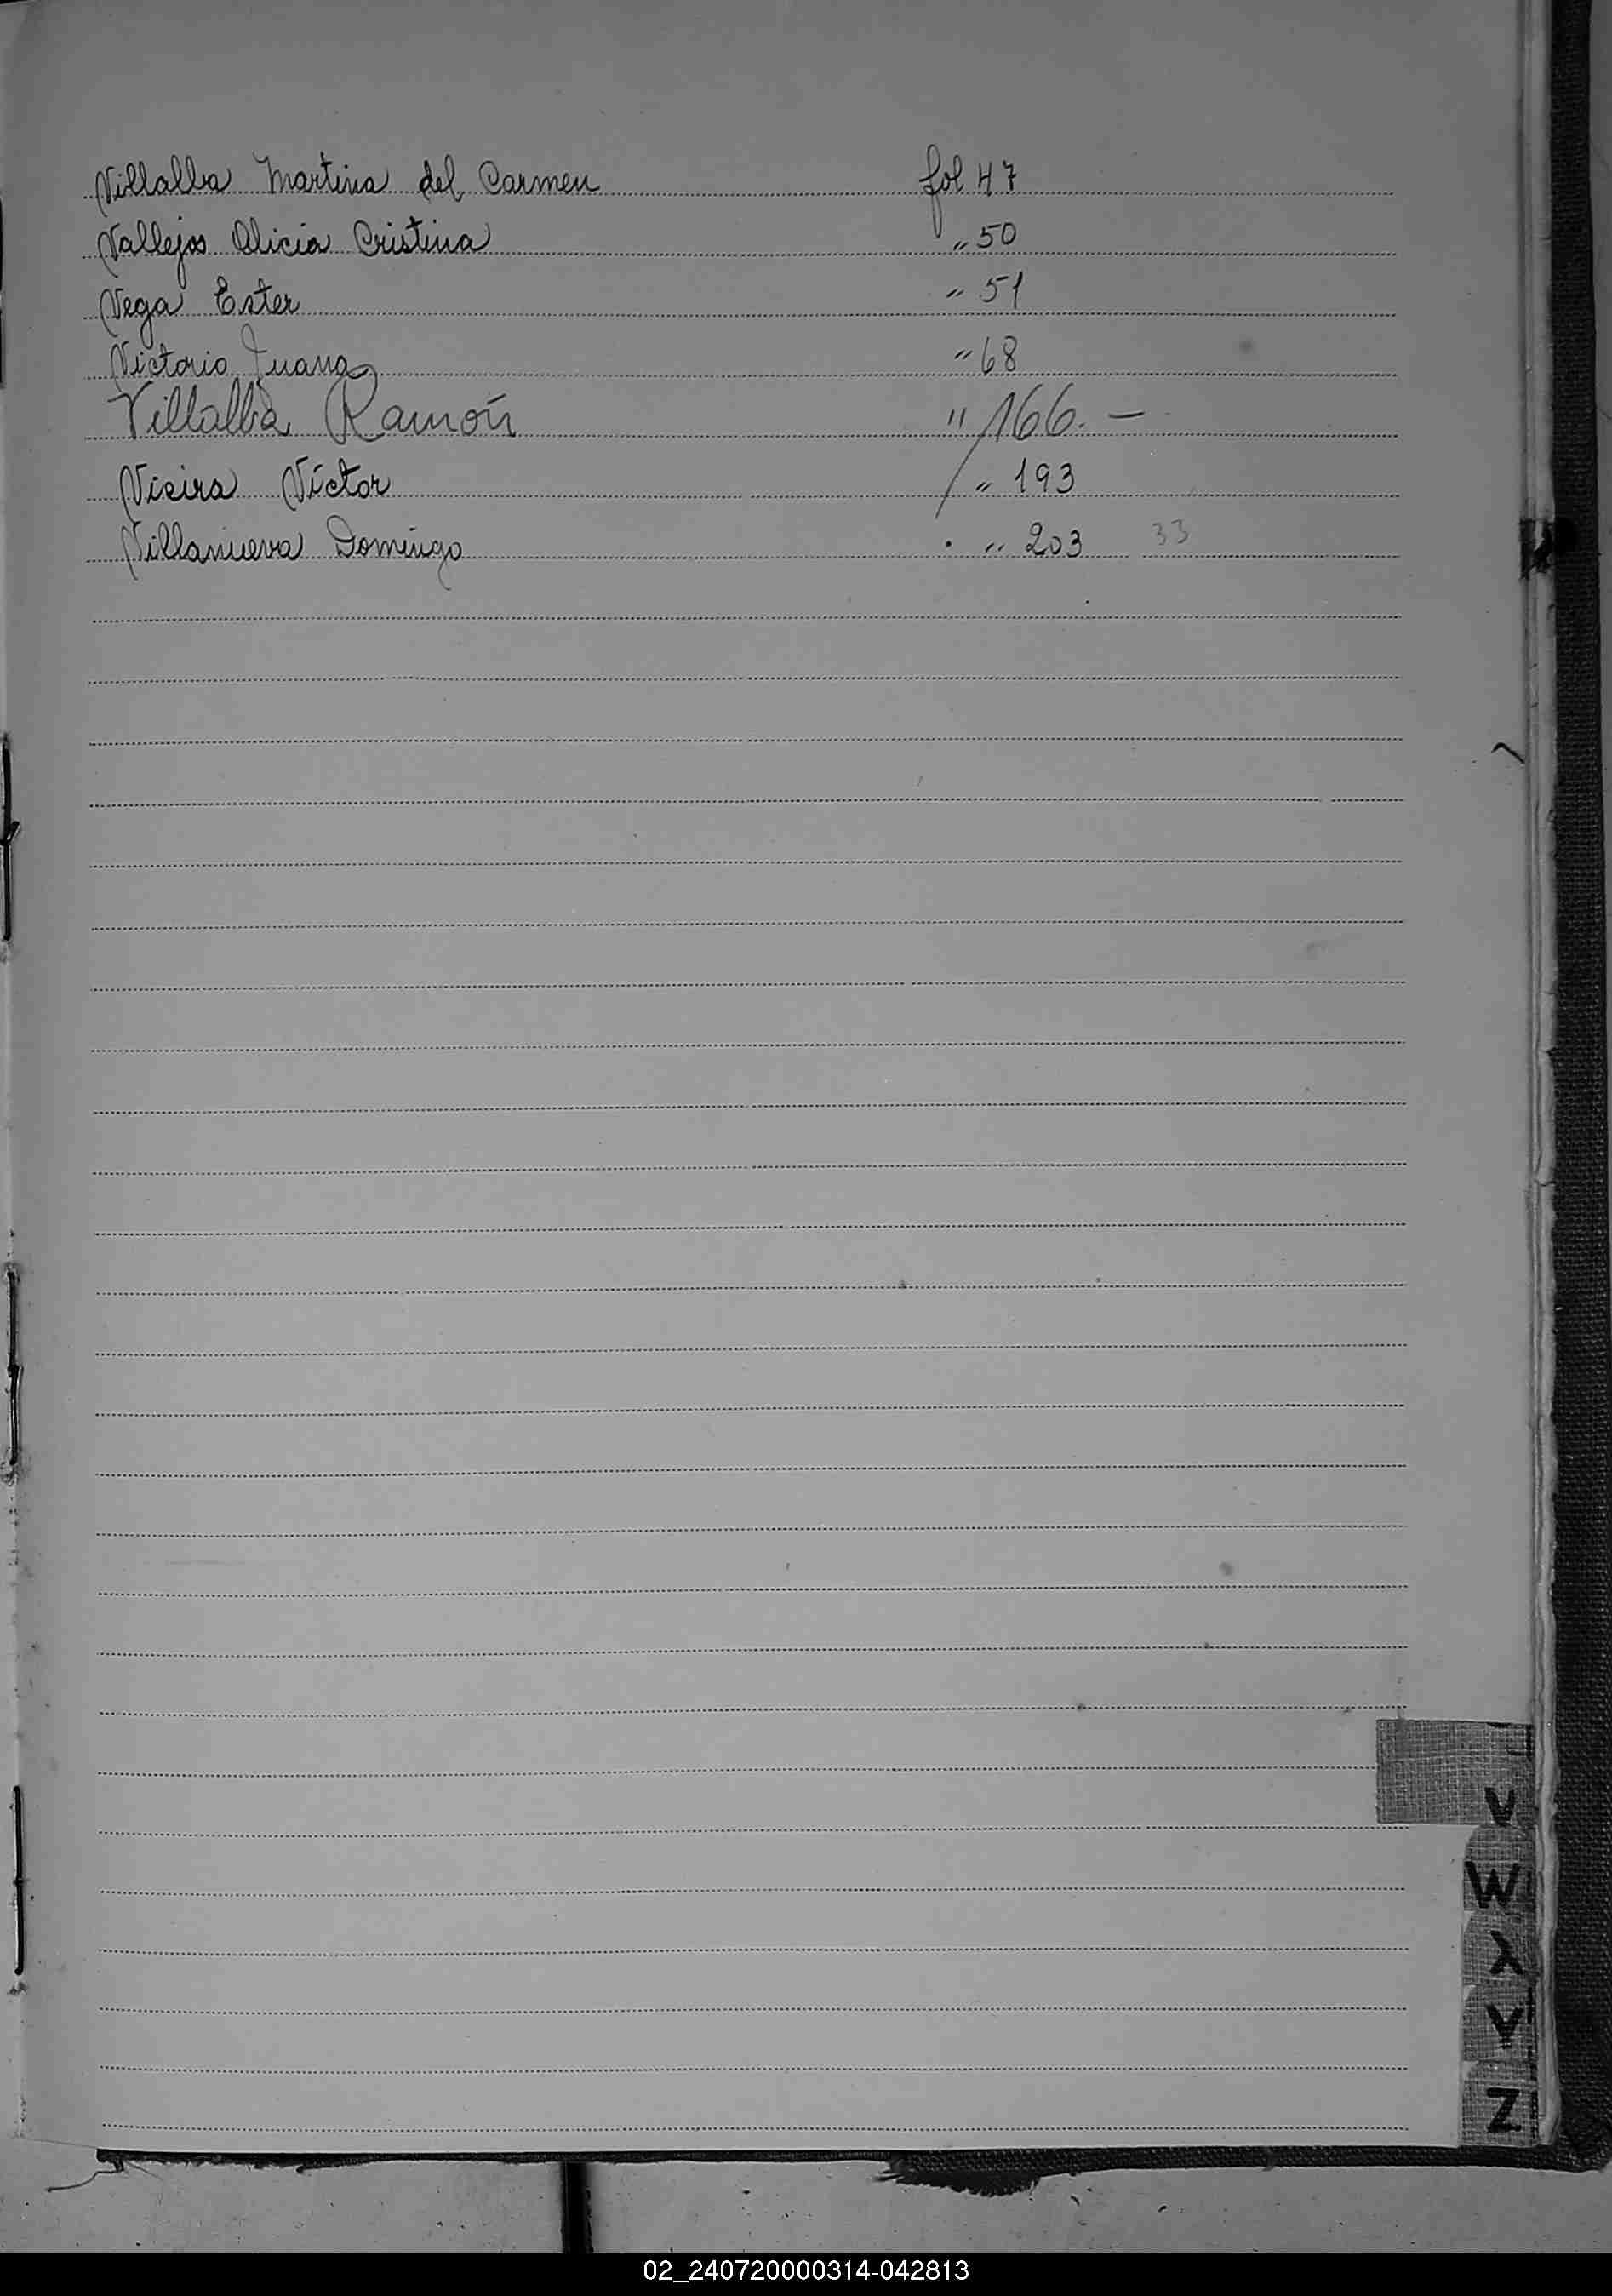 Villalba Martina del Carmen fol 47
Vallejos Alicia Cristina " 50
Vega Ester " 51
Victorio Juana " 68
Villalba Ramón " 166. —
Vieira Víctor " 193
Villanueva Domingo " 203 33
V
W
X
Y
Z
02_240720000314-042813